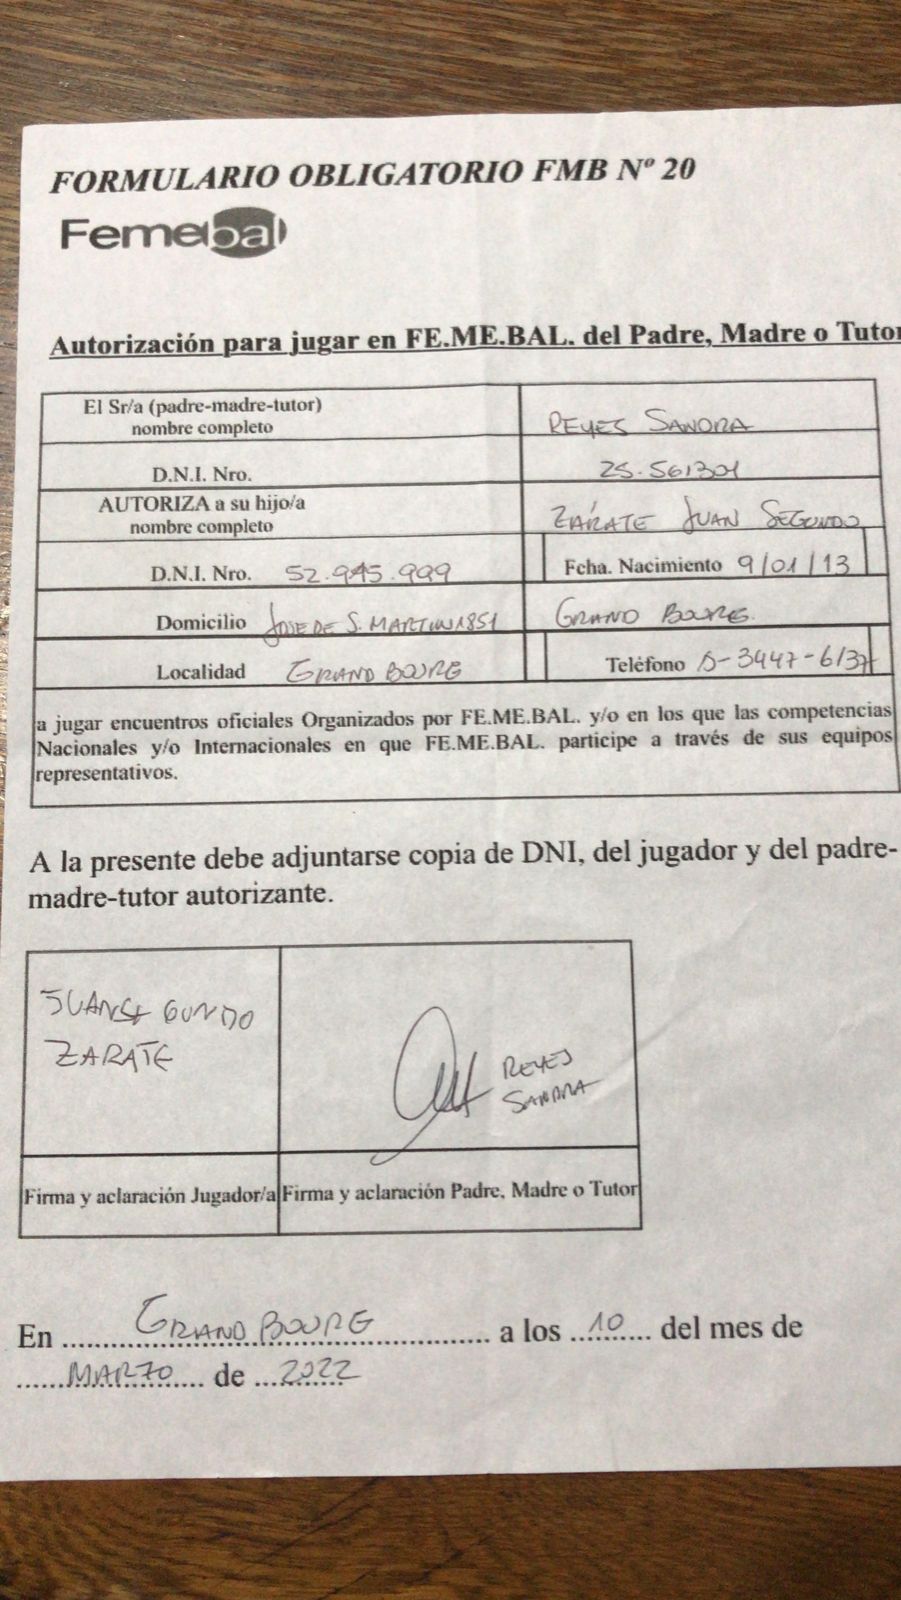 FORMULARIO OBLIGATORIO FMB Nº 20
Femebal
Autorización para jugar en FE.ME.BAL. del Padre, Madre o Tutor
El Sr/a (padre-madre-tutor)
nombre completo
REYES SANDRA
D.N.I. Nro.
25.561301
AUTORIZA a su hijo/a
nombre completo
ZÁRATE JUAN SEGUNDO
D.N.I. Nro. 52.945.999
Fcha. Nacimiento 9/01/13
Domicilio JOSE DE S. MARTIN 1851
GRAND BOURG
Localidad GRAND BOURG
Teléfono 15-3447-6137
a jugar encuentros oficiales Organizados por FE.ME.BAL. y/o en los que las competencias
Nacionales y/o Internacionales en que FE.ME.BAL. participe a través de sus equipos
representativos.
A la presente debe adjuntarse copia de DNI, del jugador y del padre-
madre-tutor autorizante.
JUAN SEGUNDO
ZARATE
REYES
SANDRA
Firma y aclaración Jugador/a
Firma y aclaración Padre, Madre o Tutor
En GRAND BOURG a los 10 del mes de
MARZO de 2022